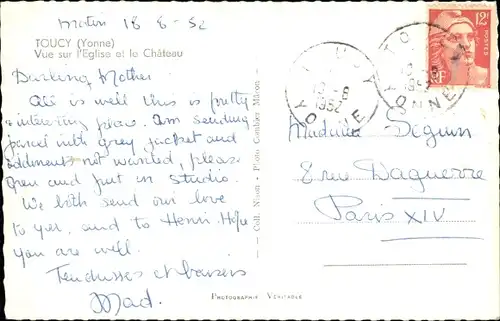 Matin 18 8-52
TOUCY (Yonne)
Vue sur l'Eglise et le Château
Darling Mother.
All is well this is pretty
interesting place. Am sending
parcel with grey jacket and
oddments not wanted, please
open and put in studio.
We both send our love
to you, and to Henri. Hope
you are well.
Tendresses et baisers
Mad.
Coll. Nison - Photo Combier Mâcon
PHOTOGRAPHIE VÉRITABLE
TOUCY
-8
1952
YONNE
TOUCY
-8
1952
YONNE
12F
POSTES
RF
Madame Séguin
8 rue Daguerre
Paris XIV